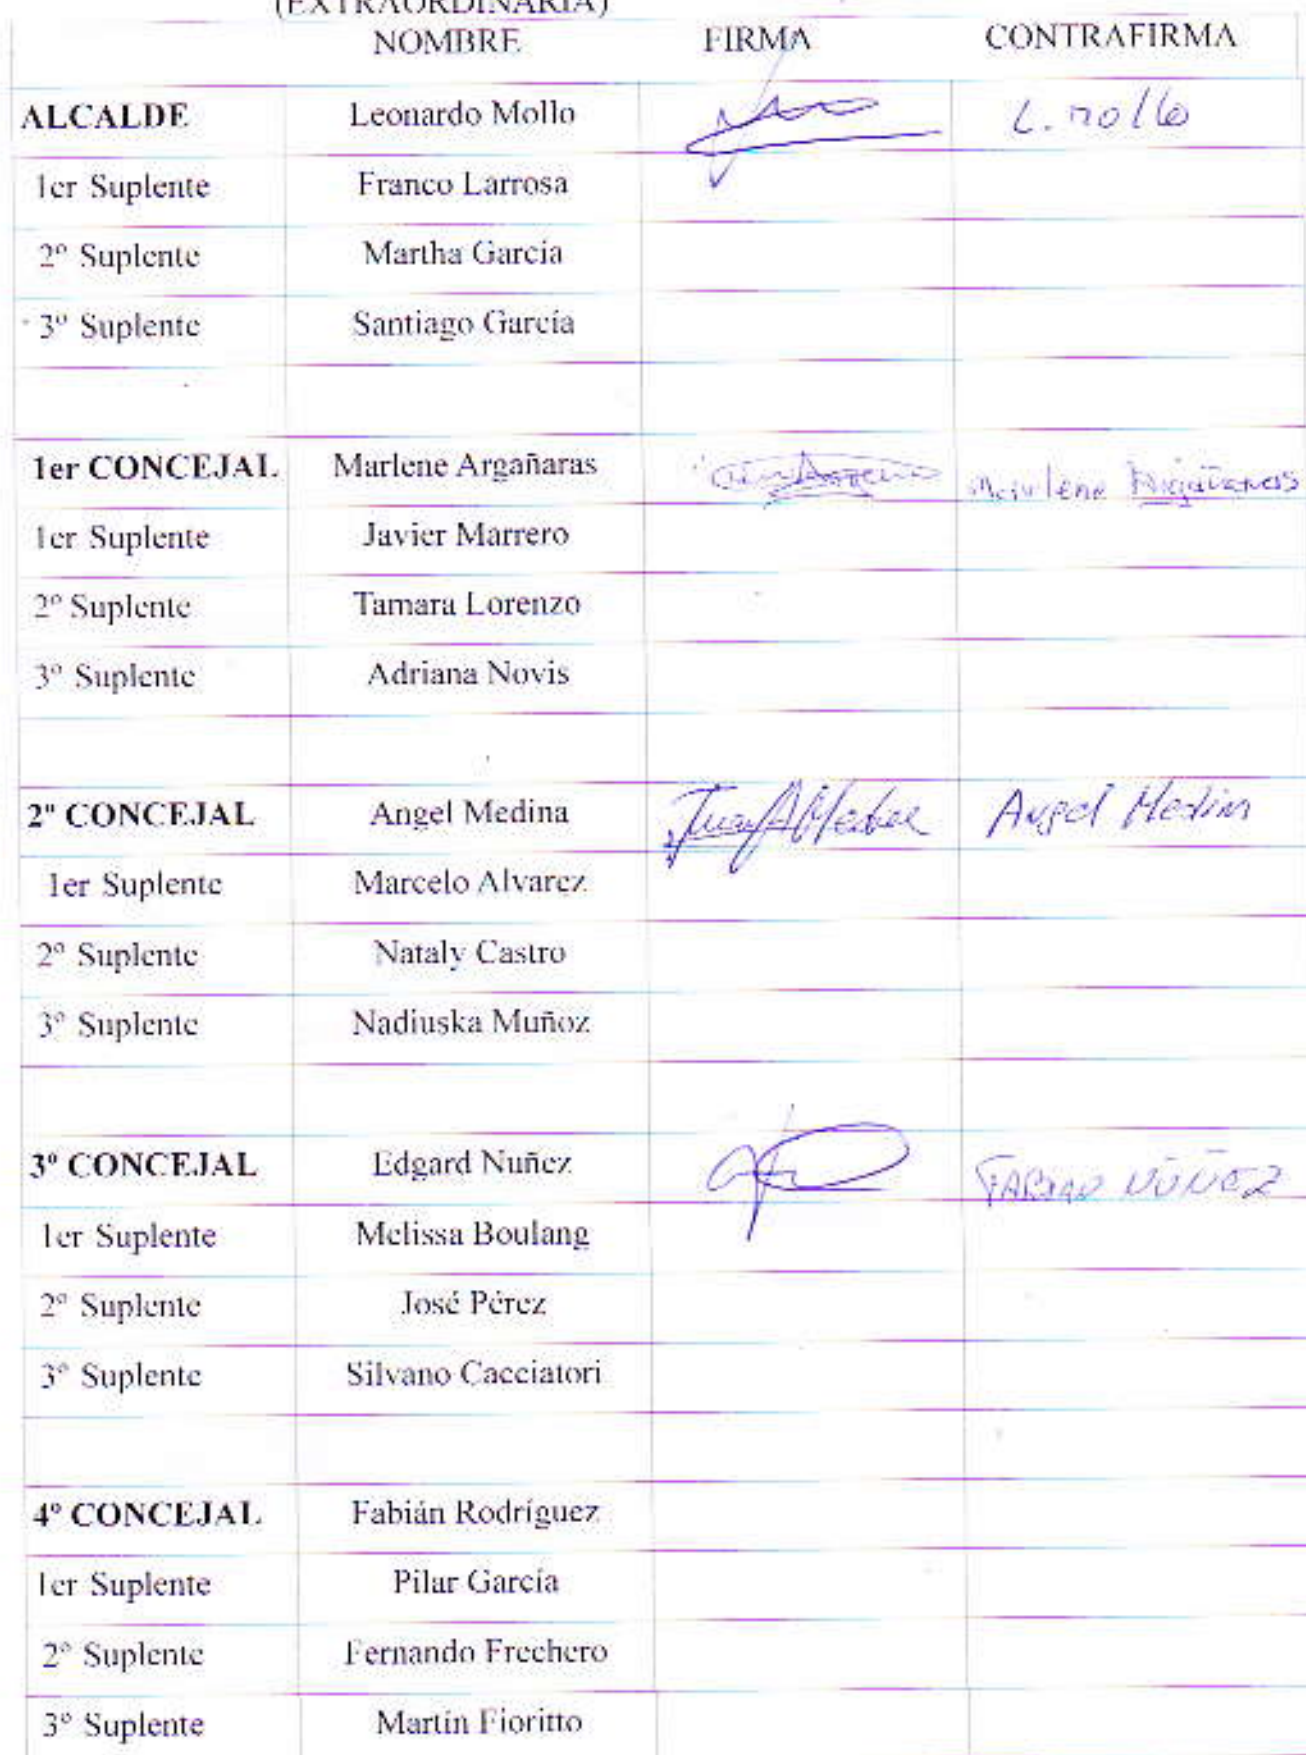 (EXTRAORDINARIA)
NOMBRE FIRMA CONTRAFIRMA
ALCALDE Leonardo Mollo L. Mollo
1er Suplente Franco Larrosa
2º Suplente Martha García
3º Suplente Santiago García
1er CONCEJAL Marlene Argañaras Marlene Argañaras
1er Suplente Javier Marrero
2º Suplente Tamara Lorenzo
3º Suplente Adriana Novis
2º CONCEJAL Angel Medina Angel Medina
1er Suplente Marcelo Alvarez
2º Suplente Nataly Castro
3º Suplente Nadiuska Muñoz
3º CONCEJAL Edgard Nuñez FABIAN NÚÑEZ
1er Suplente Melissa Boulang
2º Suplente José Pérez
3º Suplente Silvano Cacciatori
4º CONCEJAL Fabián Rodríguez
1er Suplente Pilar García
2º Suplente Fernando Frechero
3º Suplente Martín Fioritto